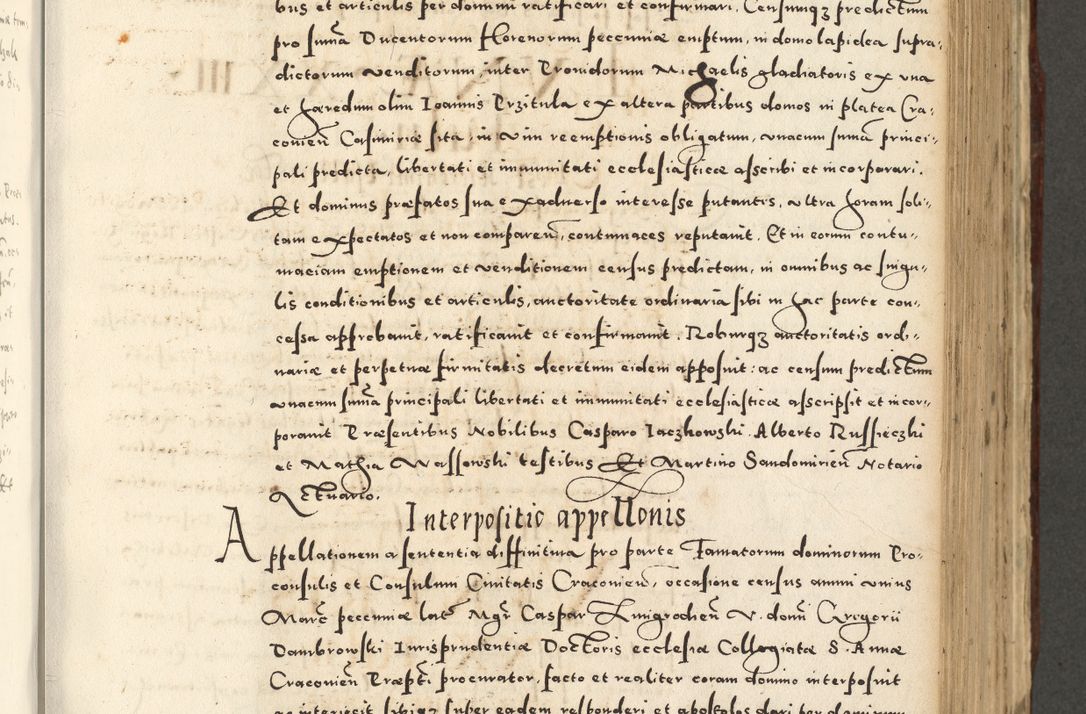 bus et articulis per dominum ratificari et confirmari. Censumq3 predictum
pro sum̃a Ducentorum florenorum pecuniæ emptum, in domo lapidea supra-
dictorum venditorum, inter Prouidorum Michaelis gladiatoris ex vna
et hæredum olim Ioannis Przitula ex altera partibus domos in platea Cra-
couieñ Casimiriæ sita, in vim reemptionis obligatum, vnacum sum̃a princi-
pali predicta, libertati et immunitati ecclesiasticæ asscribi et incorporari.
Et dominus præfatos sua ex aduerso interesse putantes, vltra horam soli-
tam expectatos et non compareñ, contumaces reputauit. Et in eorum contu-
maciam emptionem et venditionem census predictam, in omnibus ac singu-
lis conditionibus et articulis, auctoritate ordinaria sibi in hac parte con-
cessa approbauit, ratificauit et confirmauit. Roburq3 auctoritatis ordi-
nariæ et perpetuæ firmitatis decretum eidem apposuit: ac censum predictum
vnacum sum̃a principali libertati et immunitati ecclesiasticæ asscripsit et incor-
porauit Præsentibus Nobilibus Casparo Iaczkowski. Alberto Russieczki
et Mathia Wassowski testibus Et Martino Sandomirieñ Notario
Actuario.
Interpositio appellonis
Appellationem a sententia diffinitiua pro parte Famatorum dominorum Pro-
consulis et Consulum Ciuitatis Cracouieñ, occasione census annui vnius
Marc̃ pecuniæ lat̃ Mgr̃ Caspar Kmigrodzieñ V. domĩ Gregorii
Dambrowski Iurisprudentiæ Doctoris ecclesiæ Collegiatæ S. Annæ
Cracouieñ Præpt̃i procurator, facto et realiter coram domino interposuit
ac interiecit sibiq3 super eadem responderi et apostolos dari per dominum